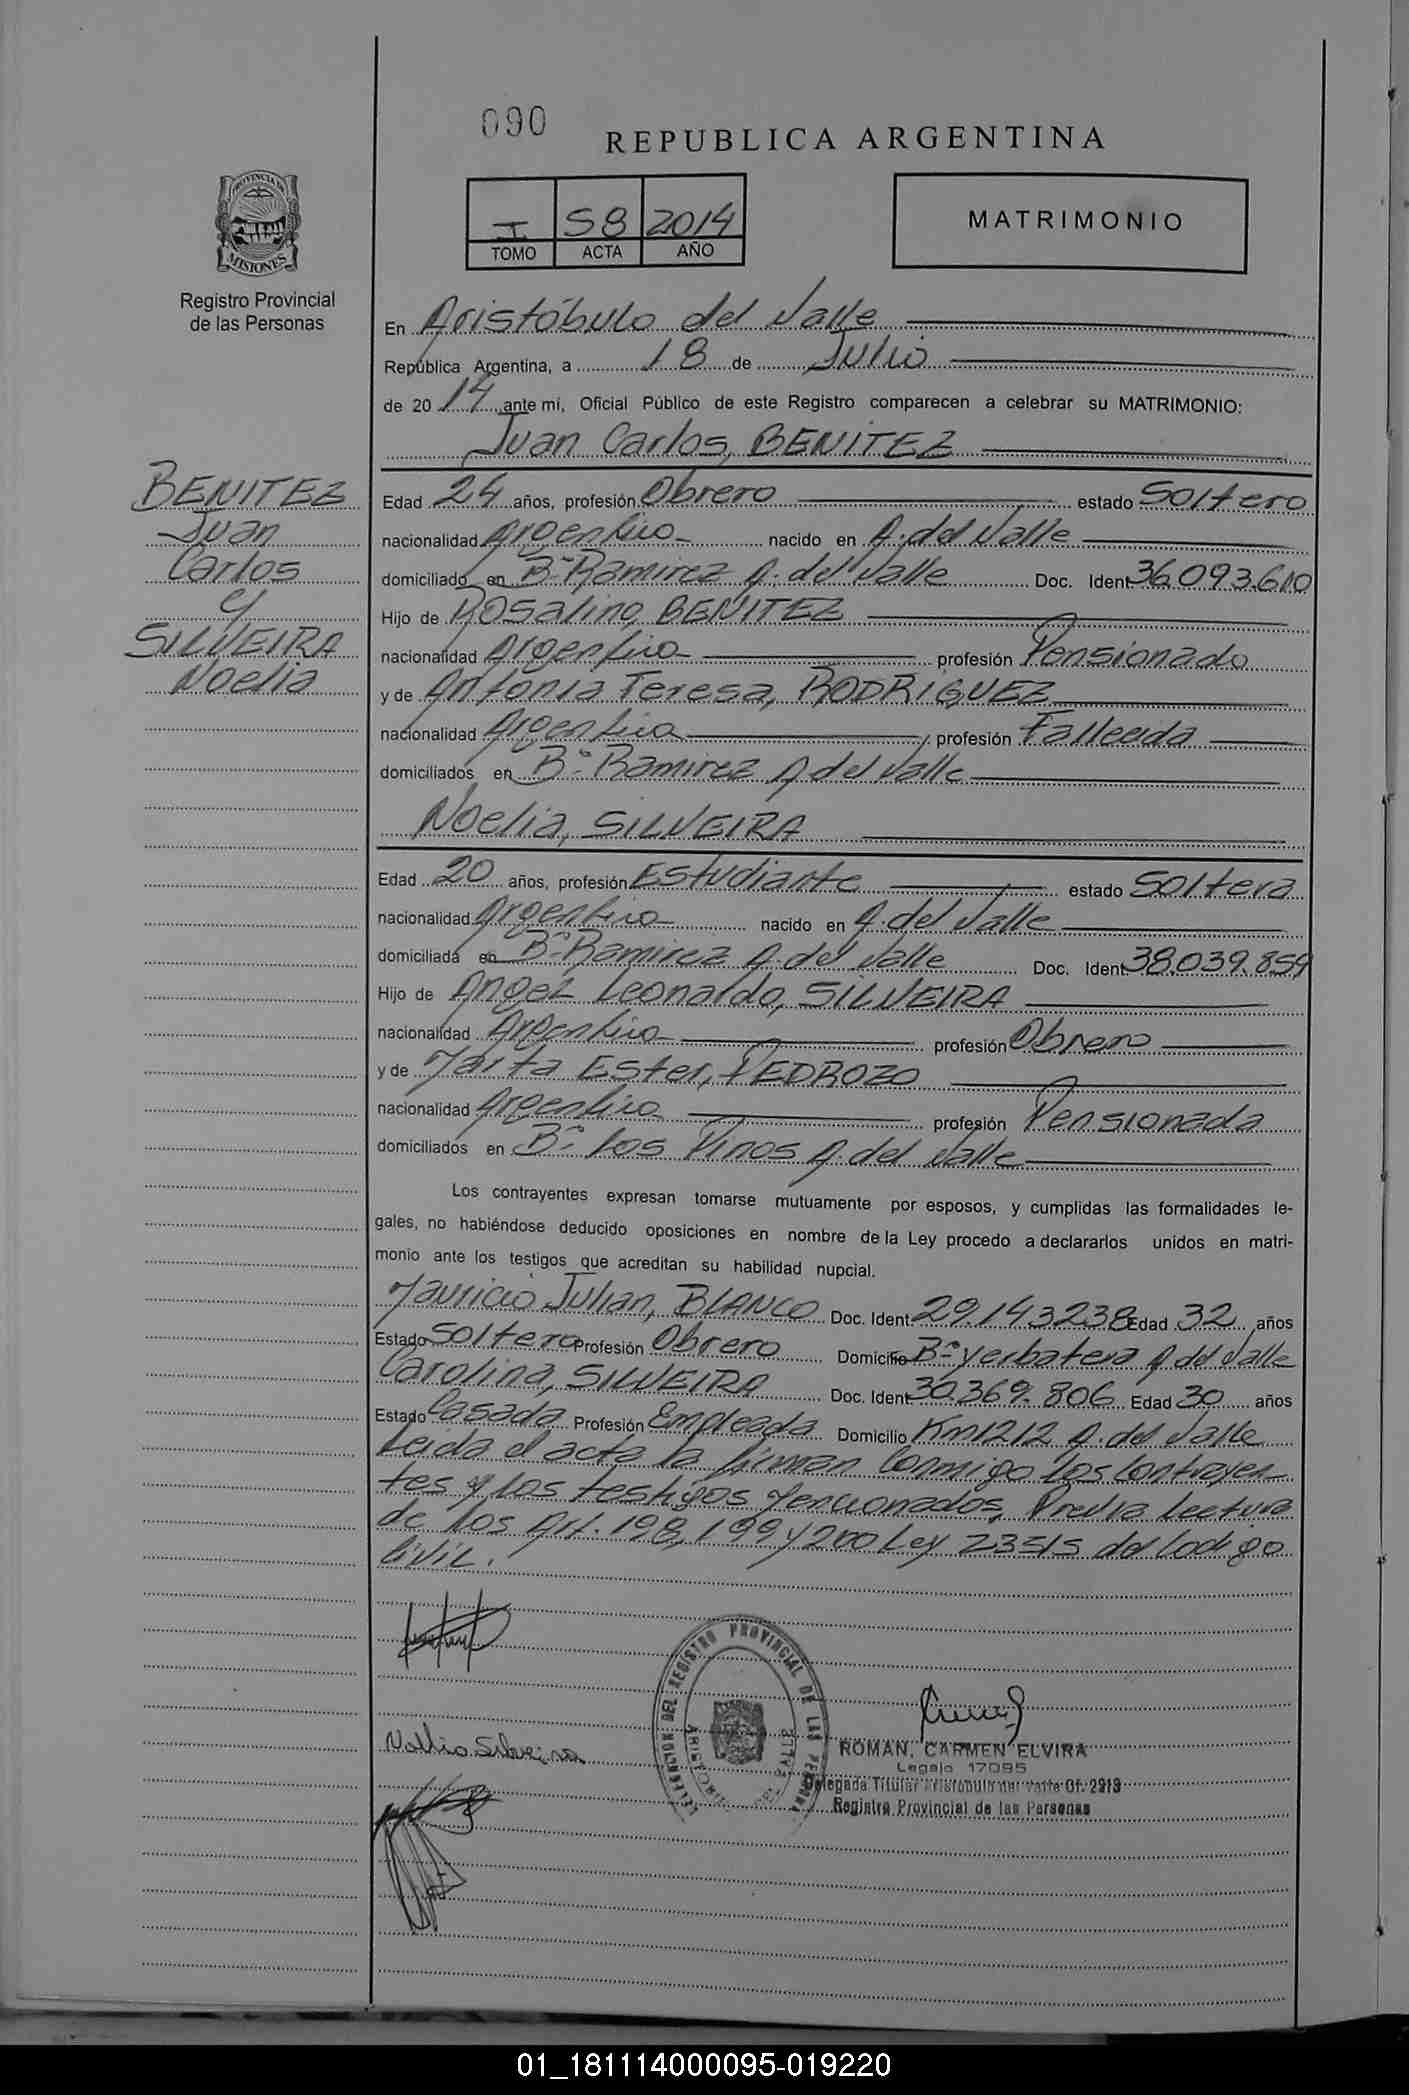 090
REPUBLICA ARGENTINA
PROVINCIA DE
MISIONES
I 58 2014
TOMO ACTA AÑO
MATRIMONIO
Registro Provincial
de las Personas
En Aristóbulo del Valle
República Argentina, a 18 de Julio
de 20 14 ante mi, Oficial Público de este Registro comparecen a celebrar su MATRIMONIO:
Juan Carlos, BENITEZ
BENITEZ
Juan
Carlos
y
SILVEIRA
Noelia
Edad 24 años, profesión Obrero estado Soltero
nacionalidad Argentino nacido en A. del Valle
domiciliado en Bº Ramirez A. del Valle Doc. Ident 36.093.610
Hijo de Rosalino, BENITEZ
nacionalidad Argentino profesión Pensionado
y de Antonia Teresa, RODRIGUEZ
nacionalidad Argentina profesión Fallecida
domiciliados en Bº Ramirez A del Valle
Noelia, SILVEIRA
Edad 20 años, profesión Estudiante estado Soltera
nacionalidad Argentina nacido en A. del Valle
domiciliada en Bº Ramirez A. del Valle Doc. Ident 38.039.859
Hijo de Angel Leonardo, SILVEIRA
nacionalidad Argentino profesión Obrero
y de Marta Ester, PEDROZO
nacionalidad Argentina profesión Pensionada
domiciliados en Bº Los Pinos A. del Valle
Los contrayentes expresan tomarse mutuamente por esposos, y cumplidas las formalidades le-
gales, no habiéndose deducido oposiciones en nombre de la Ley procedo a declararlos unidos en matri-
monio ante los testigos que acreditan su habilidad nupcial.
Mauricio Julian, BLANCO Doc. Ident 29143238 Edad 32 años
Estado Soltero Profesión Obrero Domicilio Bº yerbatera A del Valle
Carolina, SILVEIRA Doc. Ident 30.369.806 Edad 30 años
Estado Casada Profesión Empleada Domicilio Km 1212 A. del Valle
Leida el acta la firman Conmigo los Contrayen
tes y los testigos Mencionados, Previa lectura
de los Art. 198, 199 y 200 Ley 23515 del Codigo
Civil.
DEL REGISTRO PROVINCIAL DE LAS PERSONAS
DEL VALLE
Silveira
ROMAN, CARMEN ELVIRA
Legajo 17095
Delegada Titular Aristobulo del Valle Of. 2913
Registro Provincial de las Personas
01_181114000095-019220